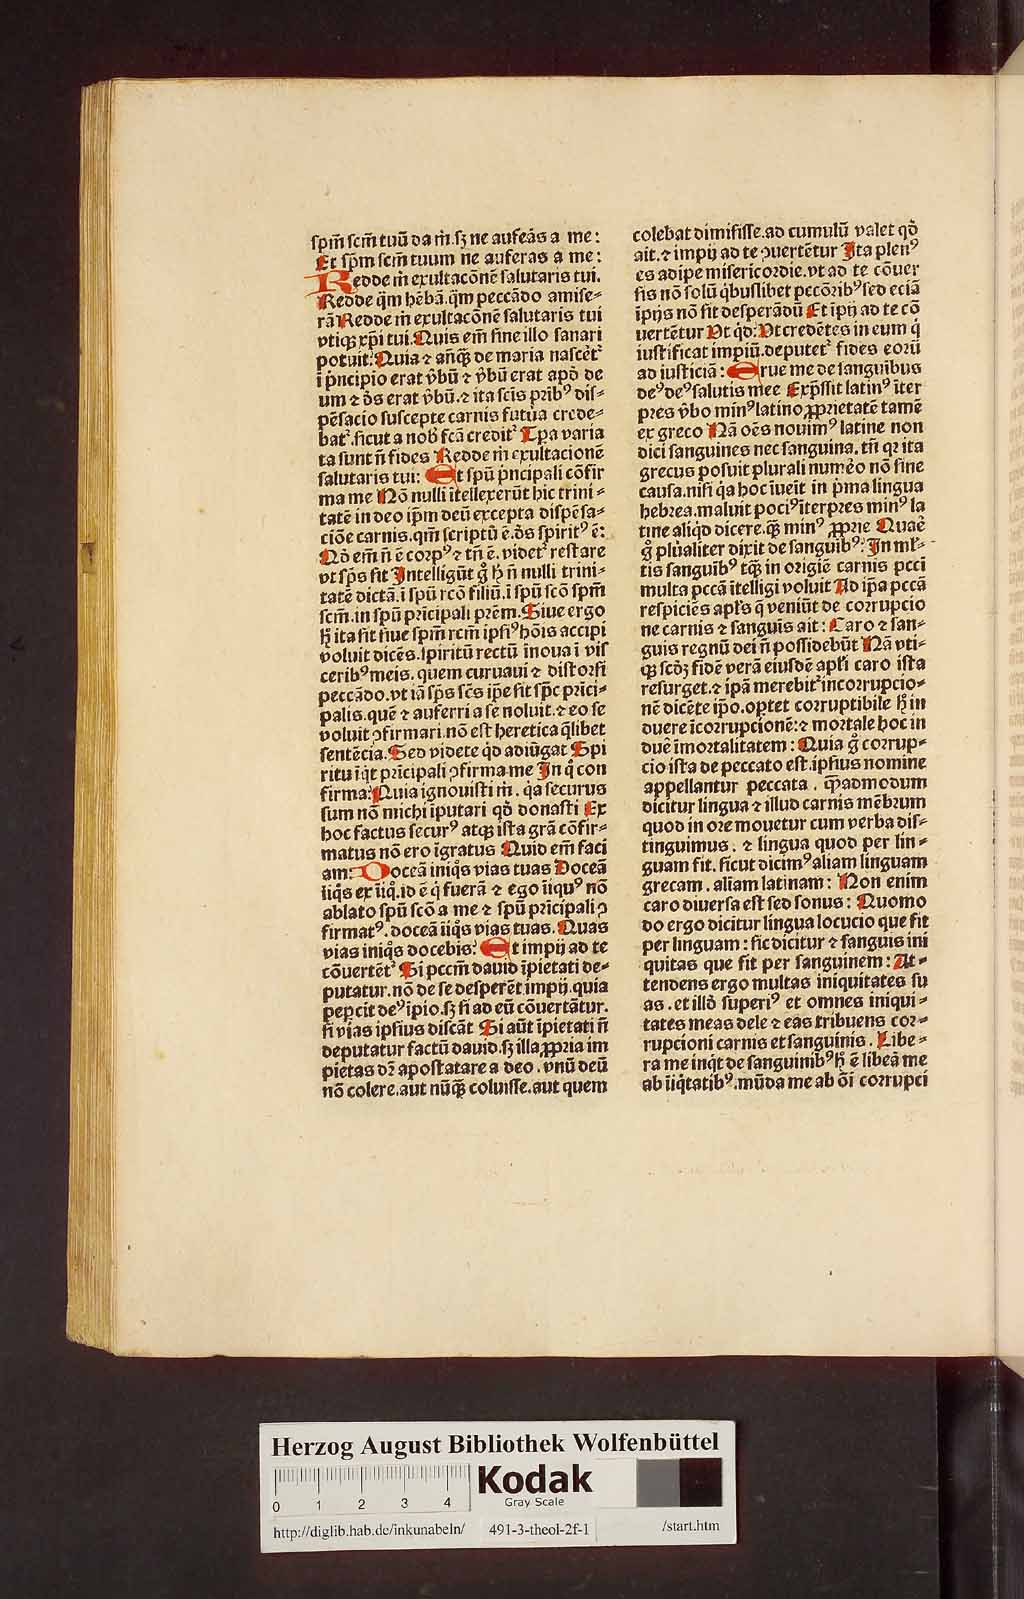 spm̄ scm̄ tuū da m̄.sꝫ ne aufeās a me:
Et sp̄m scm̄ tuum ne auferas a me:
Redde m̄ exultacōnē salutaris tui.
Redde q̄m hēbā.q̄m peccādo amise⸗
rā Redde m̄ exultacōnē salutaris tui
vtiqꝫ xp̄i tui.Quis em̄ sine illo sanari
potuit: Quia ⁊ an̄qꝫ de maria nascet᷑
ī pͥncipio erat v̄bū ⁊ v̄bū erat apd̄ de
um ⁊ ds̄ erat v̄bū.⁊ ita scīs prībꝰ dis⸗
pēsacio suscepte carnis futūa crede⸗
bat᷑.sicut a nob̄ fcā credit᷑ Tp̄a varia
ta sunt n̄ fides Redde m̄ exultacionē
salutaris tui: Et spū pͥncipali cōfir
ma me Nō nulli ītellexerūt hic trini⸗
tatē in deo ip̄m deū excepta dispēsa⸗
ciōe carnis.qm̄ scriptū ē.ds̄ spiritꝰ ē:
Qd̄ em̄ n̄ ē corpꝰ ⁊ tn̄ ē. videt᷑ restare
vt sp̄s sit Intelligūt gͦ hꝫ n̄ nulli trini⸗
tatē dictā.ī spū rcō filiū.ī spū scō spm̄
scm̄.in spū prīcipali prēm.Siue ergo
hꝫ ita sit siue spm̄ rcm̄ ipsiꝰ hōis accipi
voluit dicēs.spiritū rectū inoua ī vis
ceribꝰ meis.quem curuaui ⁊ distorsi
peccādo.vt iā sp̄s scēs ip̄e sit sp̄c prīci⸗
palis.quē ⁊ auferri a se noluit.⁊ eo se
voluit ꝯfirmari.nō est heretica qͣlibet
sentēcia.Sed videte qd̄ adiūgat Spi
ritu īqͥt prīcipali ꝯfirma me In qͦ con
firma: Quia ignouisti m̄. qͥa securus
sum nō michi īputari qd̄ donasti Ex
hoc factus securꝰ atqꝫ ista grā cōfir⸗
matus nō ero īgratus Quid em̄ faci
am: Doceā iniqͦs vias tuas Doceā
iīqͦs ex iīqͦ.id ē qͥ fuerā ⁊ ego iīquꝰ nō
ablato spū scō a me ⁊ spū prīcipali ꝯ
firmatꝰ. doceā iīqͦs vias tuas. Quas
vias iniqͦs docebis: Et impij ad te
cōuertēt᷑ Si pccm̄ dauid īpietati de⸗
putatur.nō de se desperēt impij.quia
peꝑcit deꝰ īpio.sꝫ si ad eū cōuertātur.
si vias ipsius discāt Si aūt īpietati n̄
deputatur factū dauid.sꝫ illa ꝓpria im
pietas dr̄ apostatare a deo.vnū deū
nō colere.aut nūqꝫ coluisse.aut quem
colebat dimisisse.ad cumulū valet qd̄
ait.⁊ impij ad te ꝯuertētur Ita plenꝰ
es adipe misericordie.vt ad te cōuer
sis nō solū qͥbuslibet pccōribꝰ sed eciā
īpijs nō sit desperādū Et īpij ad te cō
uertētur Vt qd̄: Vt credētes in eum qͥ
iustificat impiū.deputet᷑ fides eorū
ad iusticiā: Erue me de sanguibus
deꝰ deꝰ salutis mee Exp̄ssit latinꝰ iter
pres v̄bo minꝰ latino ꝓprietatē tamē
ex greco Nā oēs nouimꝰ latine non
dici sanguines nec sanguina. tn̄ qꝛ ita
grecus posuit plurali numēo nō sine
causa.nisi qͥa hoc īueit in pͥma lingua
hebrea.maluit pociꝰ īterpres minꝰ la
tine aliqͥd dicere.qꝫ minꝰ ꝓprie Quaē
gͦ plūaliter dixit de sanguibꝰ: In ml̄⸗
tis sanguībꝰ tqꝫ in origiē carnis pcci
multa pccā ītelligi voluit Ad ip̄a pccā
respiciēs apl̄s q̄ veniūt de corrupcio
ne carnis ⁊ sanguis ait: Caro ⁊ san⸗
guis regnū dei n̄ possidebūt Nā vti⸗
qꝫ scd̄ꝫ fidē verā eiusdē apl̄i caro ista
resurget.⁊ ip̄a merebit᷑ incorrupcio⸗
nē dicēte ip̄o.optet corruptibile hꝫ in
duere īcorrupcionē:⁊ mortale hoc in
duē īmortalitatem: Quia gͦ corrup⸗
cio ista de peccato est.ipsius nomine
appellantur peccata . quēadmodum
dicitur lingua ⁊ illud carnis mēbrum
quod in ore mouetur cum verba dis⸗
tinguimus . ⁊ lingua quod per lin⸗
guam fit.sicut dicimꝰ aliam linguam
grecam.aliam latinam: Non enim
caro diuersa est sed sonus: Quomo
do ergo dicitur lingua locucio que fit
per linguam: sic dicitur ⁊ sanguis ini
quitas que fit per sanguinem: At⸗
tendens ergo multas iniquitates su
as . et illd̄ superiꝰ et omnes iniqui⸗
tates meas dele ⁊ eas tribuens cor⸗
rupcioni carnis et sanguinis. Libe⸗
ra me inqͥt de sanguinibꝰ hꝫ ē libeā me
ab iīqͥtatibꝰ.mūda me ab ōi corrupci
Herzog August Bibliothek Wolfenbüttel
0 1 2 3 4
Kodak
Gray Scale
http://diglib.hab.de/inkunabeln/ 491-3-theol-2f-1 /start.htm